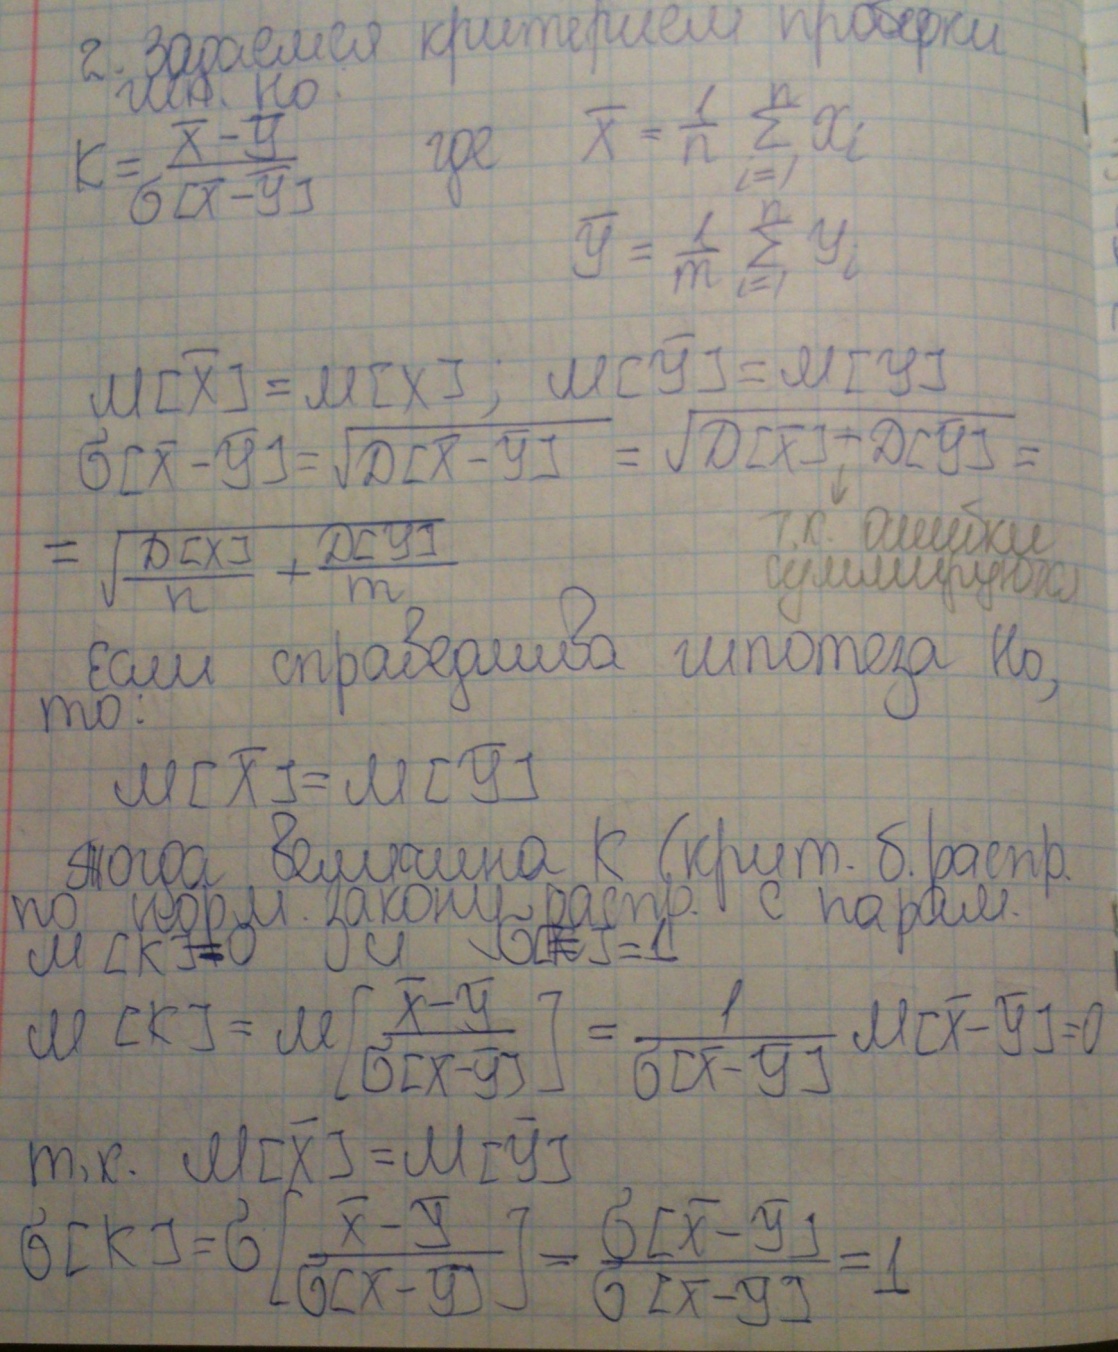 2. Задаемся критерием проверки
гип. H₀:
K = (x̄ - ȳ) / σ[x̄ - ȳ] где x̄ = 1/n Σ_{i=1}^{n} x_i
ȳ = 1/m Σ_{i=1}^{n} y_i
M[x̄] = M[x]; M[ȳ] = M[y]
σ[x̄ - ȳ] = √(D[x̄ - ȳ]) = √(D[x̄] + D[ȳ]) =
т.к. ошибки
суммируются
= √(D[x]/n + D[y]/m)
Если справедлива гипотеза H₀,
то:
M[x̄] = M[ȳ]
тогда величина K (крит. б. распр.
по норм. закону распр. с парам.
M[K] = 0 и σ[K] = 1
M[K] = M[(x̄ - ȳ) / σ[x̄ - ȳ]] = 1 / σ[x̄ - ȳ] M[x̄ - ȳ] = 0
т.к. M[x̄] = M[ȳ]
σ[K] = σ[(x̄ - ȳ) / σ[x̄ - ȳ]] = σ[x̄ - ȳ] / σ[x̄ - ȳ] = 1